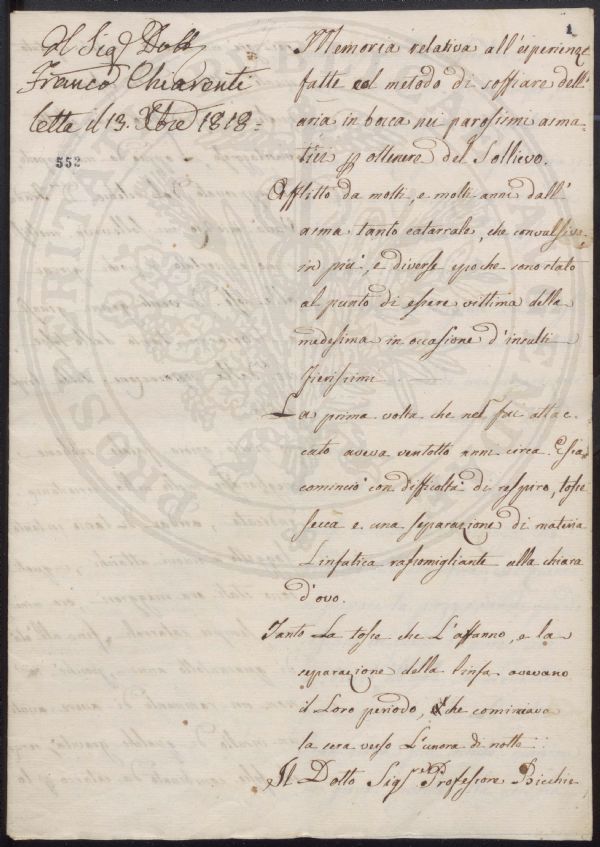 1
Al Sig.r Dott.
Franco Chiarenti
letta il 13. Xbre 1818.
552
Memoria relativa all'esperienze
fatte col metodo di soffiare dell'
aria in bocca nei parosismi asma-
tici p ottenere del Sollievo.
Afflitto da molti, e molti anni dall'
asma tanto catarrale, che convulsiva,
in più, e diverse epoche sono stato
al punto di essere vittima della
medesima in occasione d'insulti
Fierissimi
La prima volta che nel fui attac-
cato aveva ventotto anni circa. Essa
cominciò con difficoltà di respiro, tosse
secca e una separazione di materia
Linfatica rassomigliante alla chiara
d'ovo.
Tanto La tosse che L'affanno, e la
separazione della linfa avevano
il Loro periodo, che cominciava
la sera verso L'un'ora di notte
Il Dotto Sigr Professore Bicchie
PROSPERITATI PUBLICAE